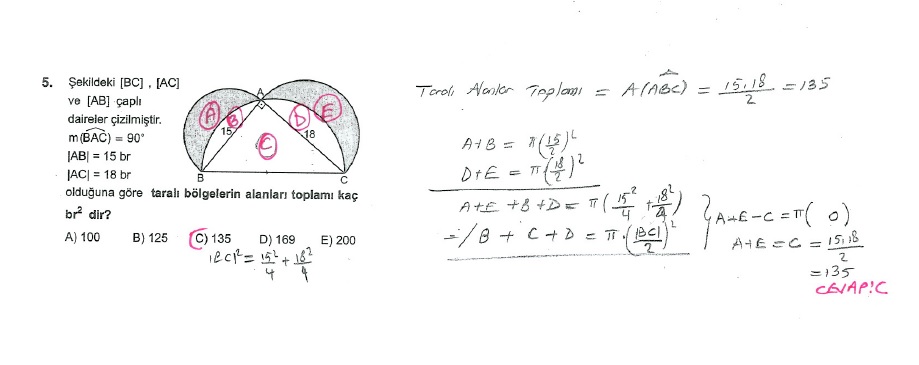 5. Şekildeki [BC] , [AC]
ve [AB] çaplı
daireler çizilmiştir.
m(BAC) = 90°
|AB| = 15 br
|AC| = 18 br
olduğuna göre taralı bölgelerin alanları toplamı kaç
br² dir?
A) 100 B) 125 C) 135 D) 169 E) 200
|BC|² = 15²/4 + 18²/4
A
A B D E
15 18
C
B C
Taralı Alanlar Toplamı = A(ABC) = 15.18/2 = 135
A+B = π(15/2)²
D+E = π(18/2)²
A+E+B+D = π(15²/4 + 18²/4)
-/ B + C + D = π.(|BC|/2)²
A+E-C = π( 0)
A+E = C = 15.18/2
= 135
CEVAP:C